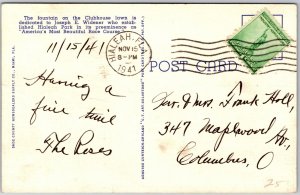 The fountain on the Clubhouse lawn is
dedicated to Joseph E. Widener who estab-
lished Hialeah Park in its preeminence as
"America's Most Beautiful Race Course."
11/15/41
Having a
fine time
The Roses
HIALEAH,
NOV 15
8-PM
1941
POST CARD
Mr. & Mrs. Frank Holl,
347 Maplewood
Columbus, O
25